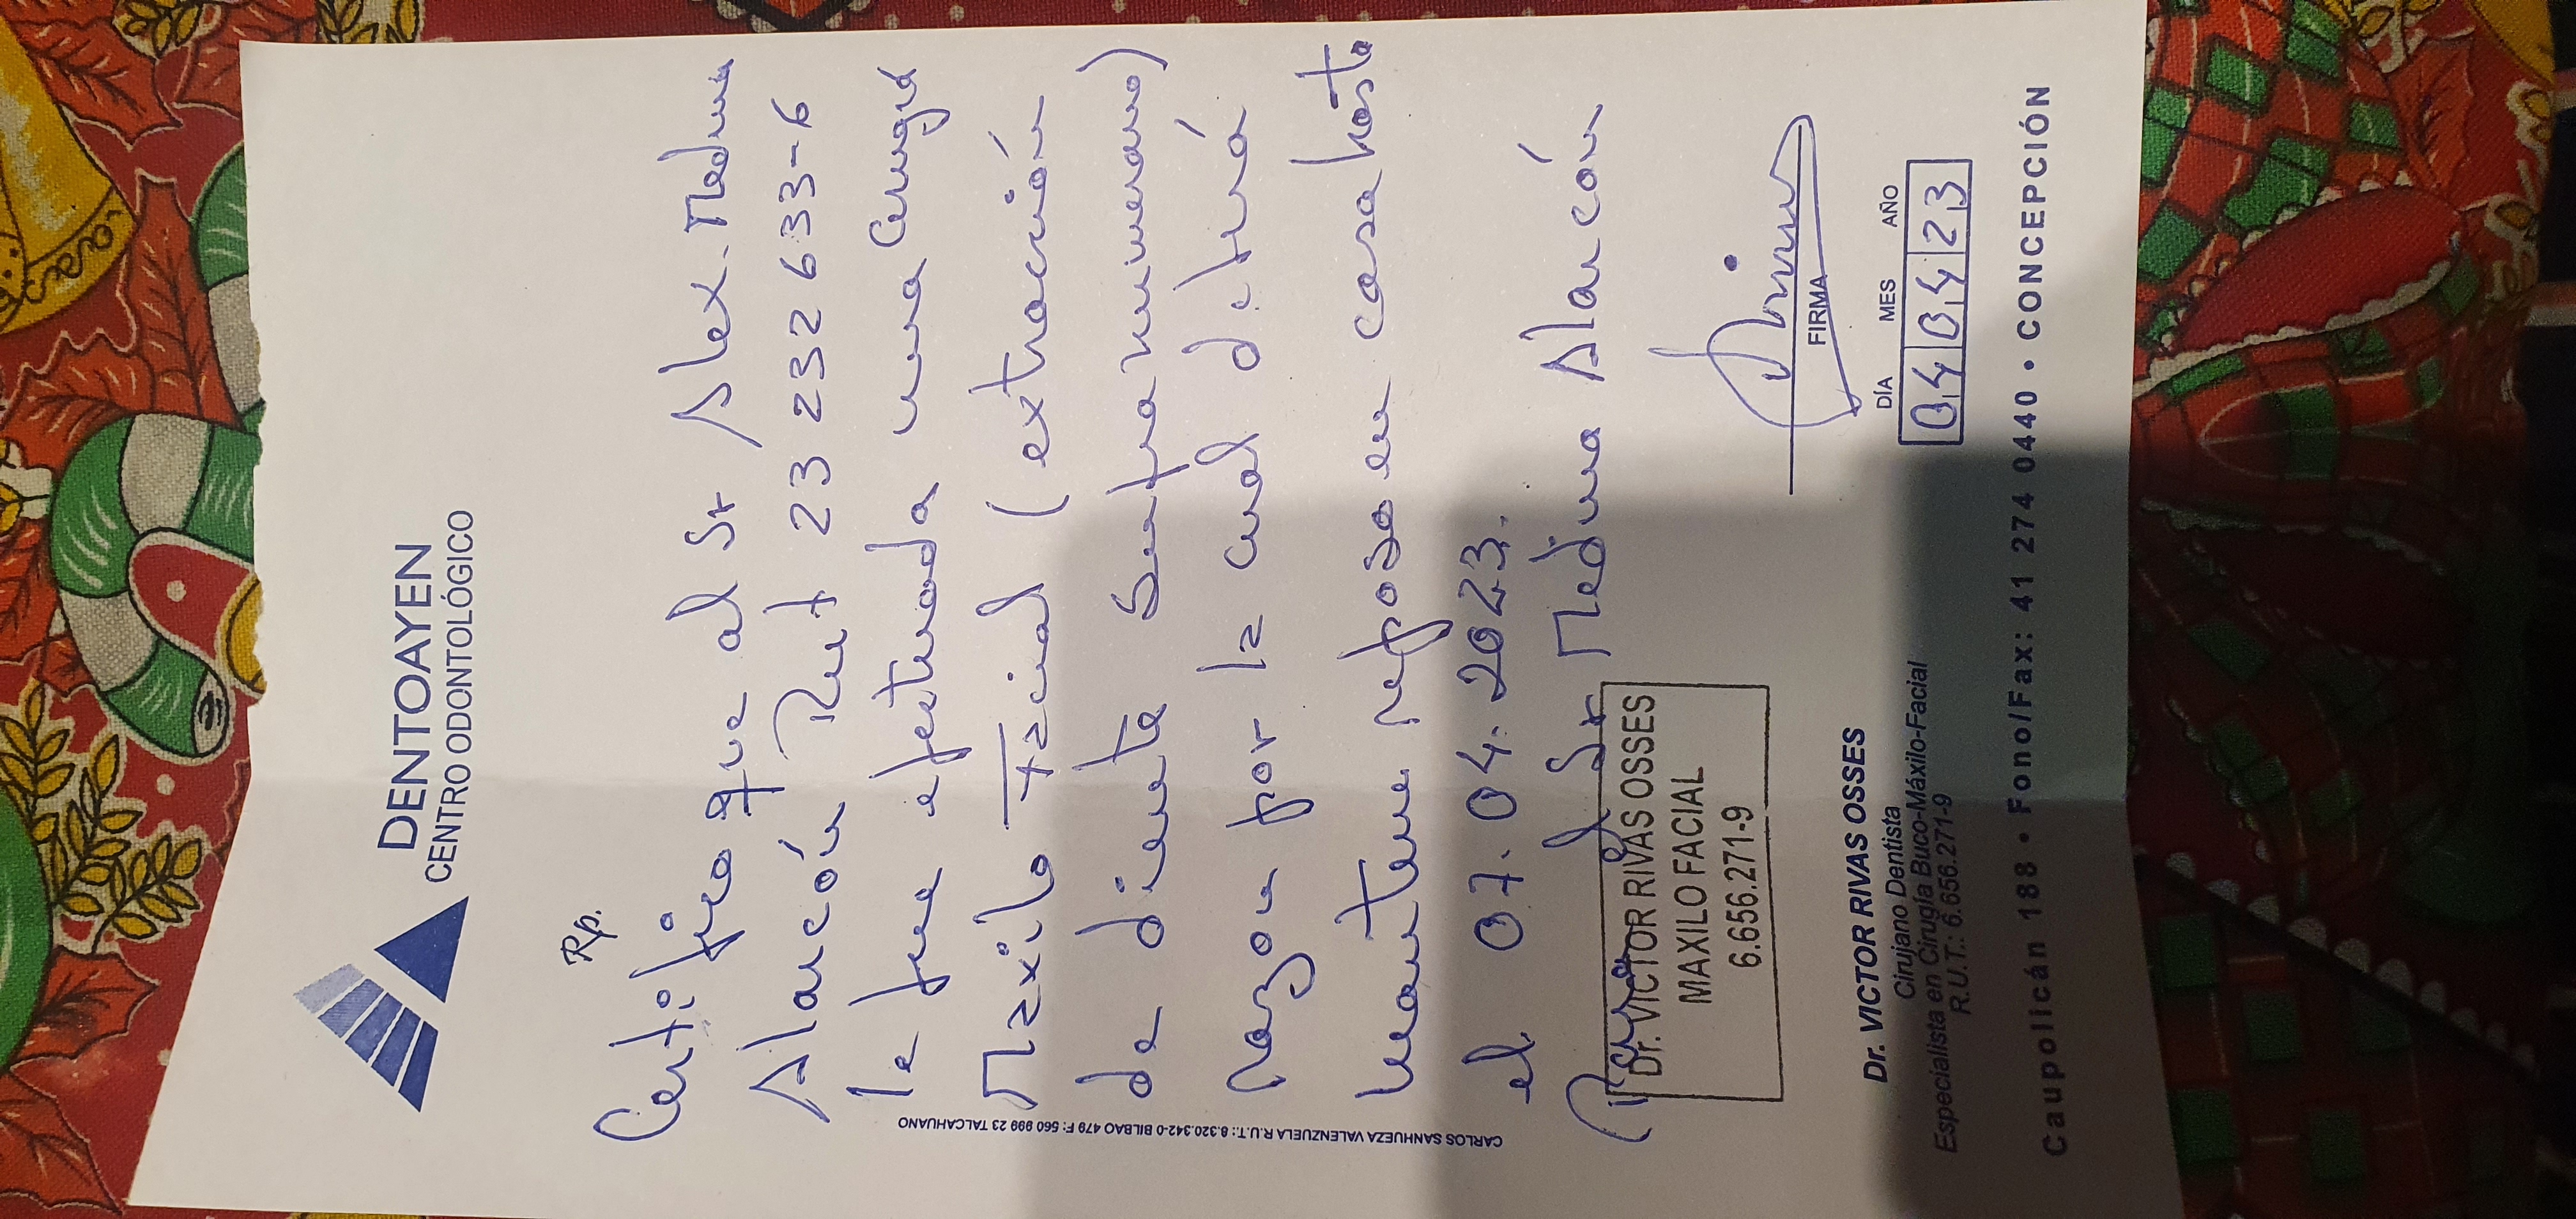 DENTOAYEN
CENTRO ODONTOLÓGICO
Rp.
Certifico que al Sr Alex Medina
Alarcón Rut 23 232 633-6
le fue efectuada una Cirugía
Maxilo Facial (extracción
de diente Supranumerario)
Razon por la cual deberá
mantener reposo en casa hasta
el 07.04.2023.
Para el Sr Medina Alarcón
Dr. VICTOR RIVAS OSSES
MAXILO FACIAL
6.656.271-9
FIRMA
DÍA MES AÑO
04 04 23
Dr. VICTOR RIVAS OSSES
Cirujano Dentista
Especialista en Cirugía Buco-Máxilo-Facial
R.U.T.: 6.656.271-9
Caupolicán 188 • Fono/Fax: 41 274 0440 • CONCEPCIÓN
CARLOS SANHUEZA VALENZUELA R.U.T.: 8.320.342-0 BILBAO 479 F: 560 999 23 TALCAHUANO